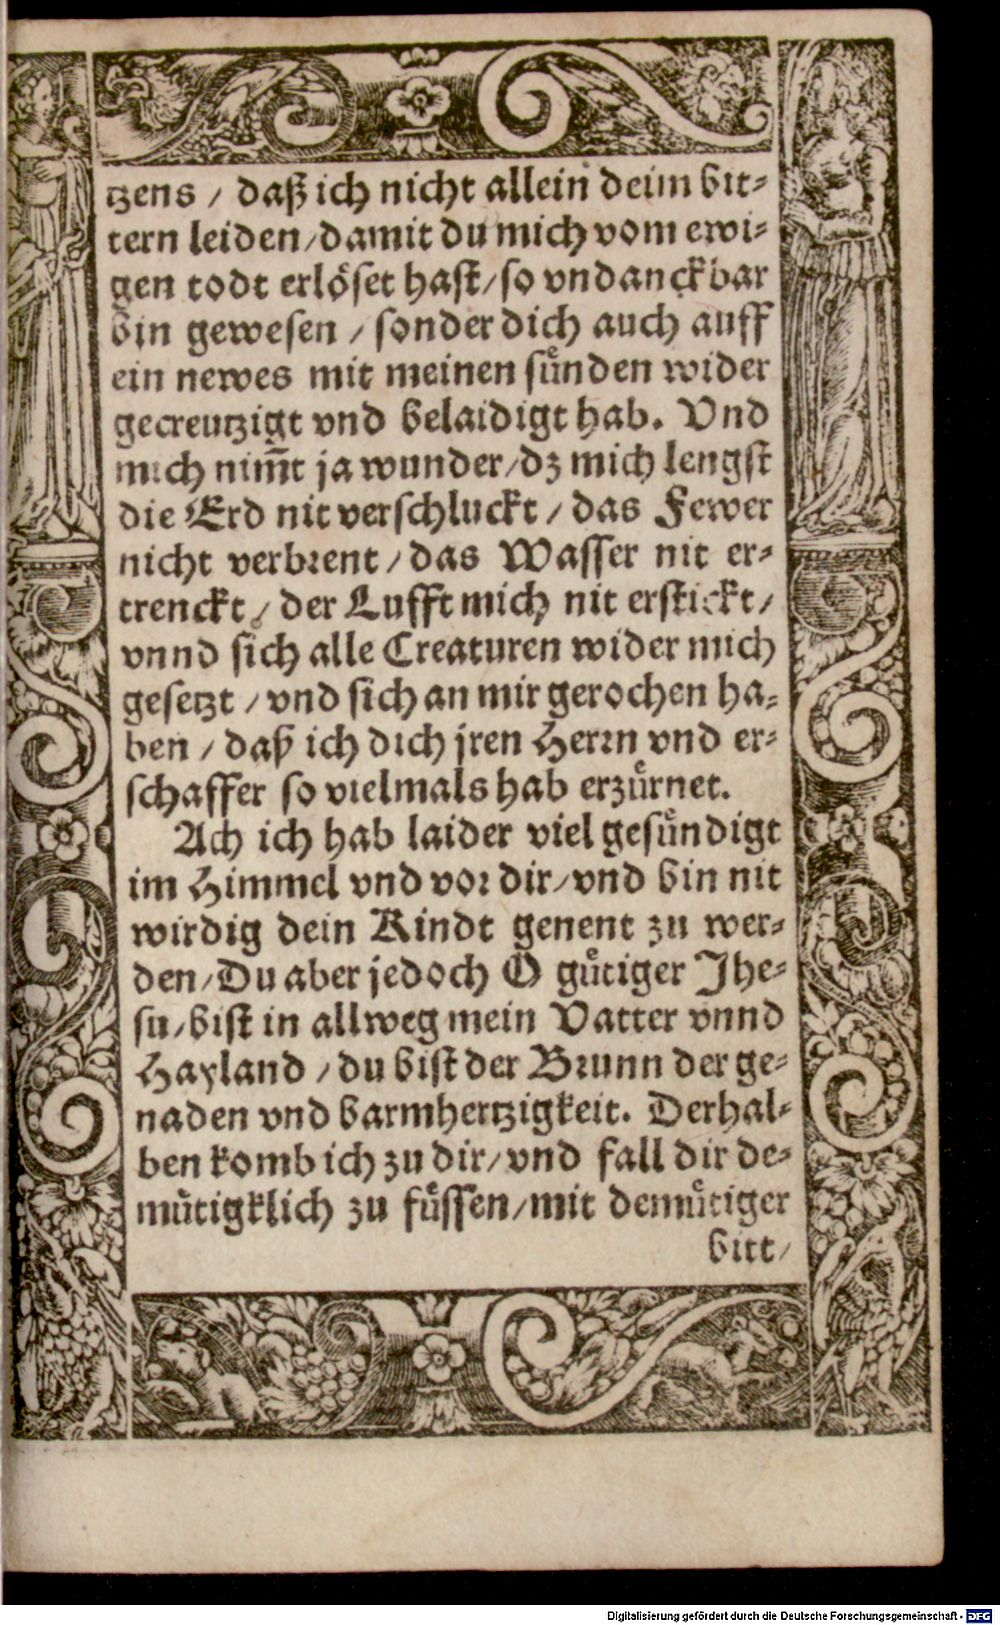 tzens / daß ich nicht allein deim bit⸗
tern leiden / damit du mich vom ewi⸗
gen todt erlöset hast / so vndanckbar
bin gewesen / sonder dich auch auff
ein newes mit meinen sünden wider
gecreutzigt vnd belaidigt hab. Vnd
mich nim̃t ja wunder / dz mich lengst
die Erd nit verschluckt / das Fewer
nicht verbrent / das Wasser nit er⸗
trenckt / der Lufft mich nit erstickt /
vnnd sich alle Creaturen wider mich
gesetzt / vnd sich an mir gerochen ha⸗
ben / daß ich dich jren Herrn vnd er⸗
schaffer so vielmals hab erzürnet.
Ach ich hab laider viel gesündigt
im Himmel vnd vor dir / vnd bin nit
wirdig dein Kindt genent zu wer⸗
den / Du aber jedoch O gütiger Jhe⸗
su / bist in allweg mein Vatter vnnd
Hayland / du bist der Brunn der ge⸗
naden vnd barmhertzigkeit. Derhal⸗
ben komb ich zu dir / vnd fall dir de⸗
mütigklich zu füssen / mit demütiger
bitt /
Digitalisierung gefördert durch die Deutsche Forschungsgemeinschaft - DFG